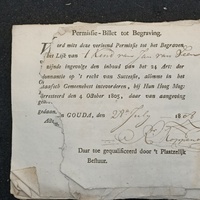 Permissie-Billet tot Begraving.
Word mits deze verleend Permissie tot het Begraven
het Lijk van 1 Kind van Jan van
zynde ingevolge den inhoud van het 24 Art: der
Ordonnantie op 't recht van Successie, alomme in het
Bataafsch Gemeenebest intevorderen, bij Hun Hoog Mog:
Gearresteerd den 4 October 1805, daar van aangeving
gedaan.
GOUDA, den 28 July 180
Daar toe gequalificeerd door 't Plaatselijk
Bestuur.